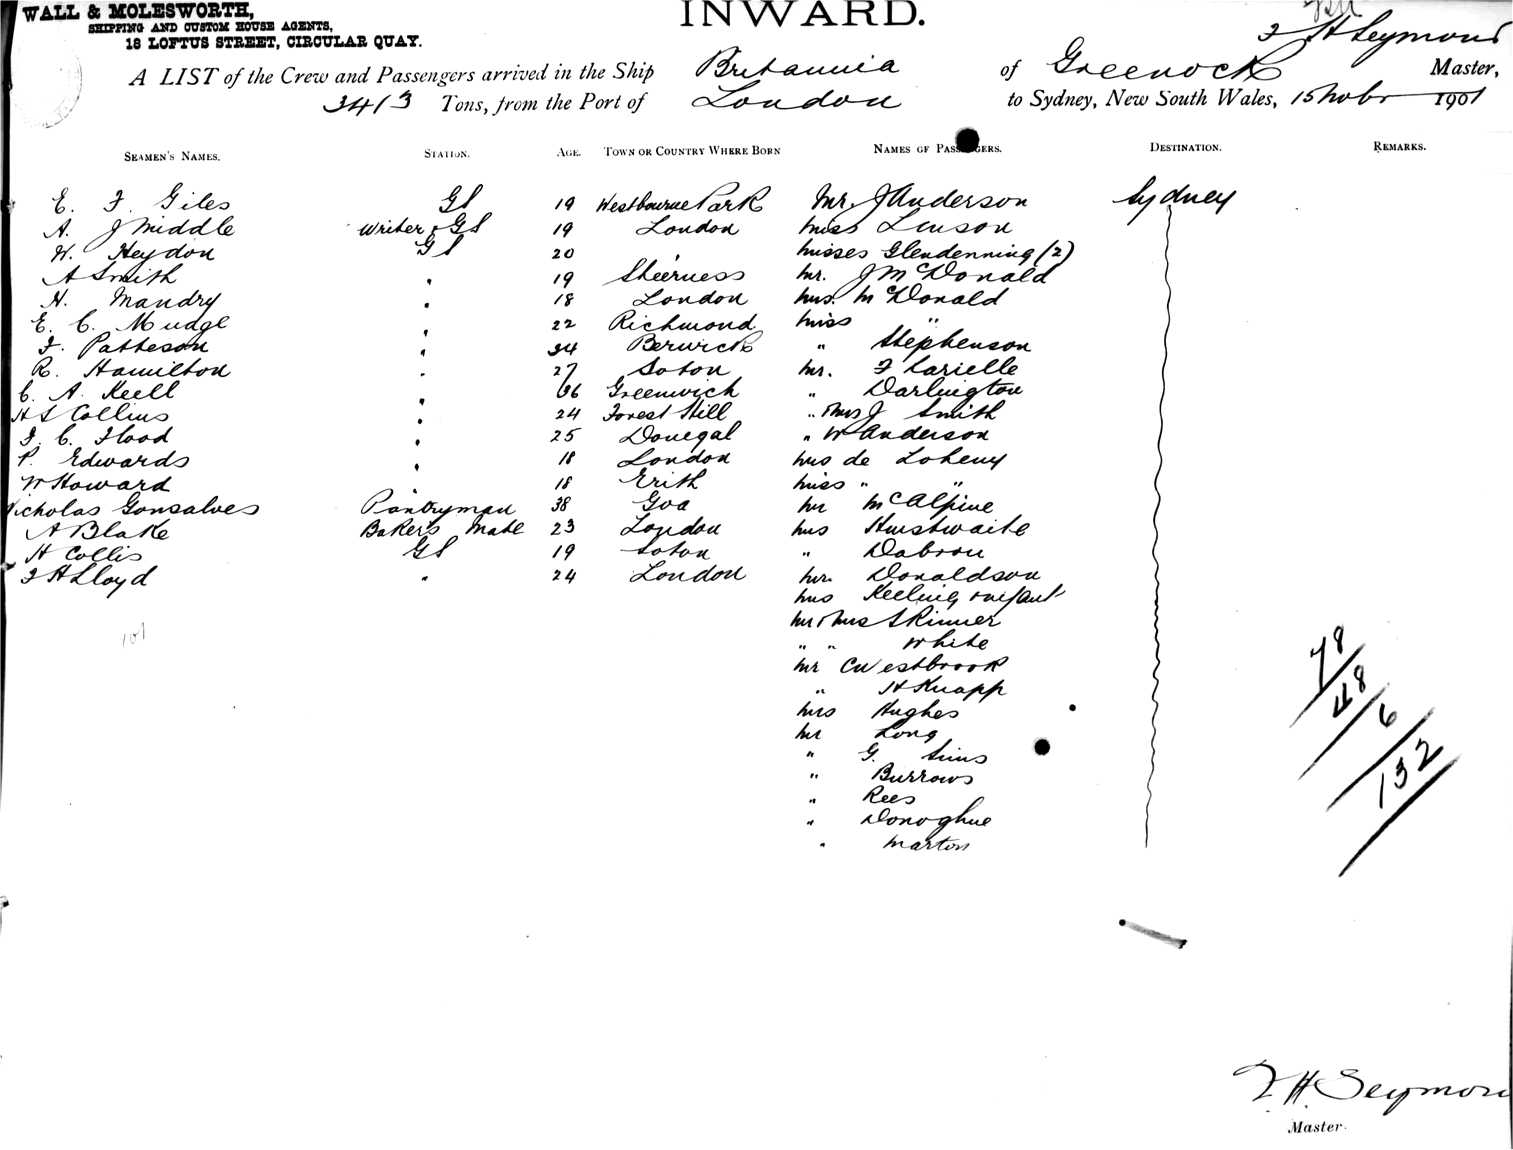 WALL & MOLESWORTH,
SHIPPING AND CUSTOM HOUSE AGENTS,
18 LOFTUS STREET, CIRCULAR QUAY.
INWARD.
J H Seymour
A LIST of the Crew and Passengers arrived in the Ship Britannia of Greenock Master,
3413 Tons, from the Port of London to Sydney, New South Wales, 15 Nobr 1901
SEAMEN'S NAMES. STATION. AGE. TOWN OR COUNTRY WHERE BORN NAMES OF PASSENGERS. DESTINATION. REMARKS.
E. F. Giles GS 19 Westbourne Park Mr. J Anderson Sydney
A. J Middle Writer & GS 19 London Miss Linson
W. Heydon GS 20 Misses Glendenning (2)
A Smith " 19 Sheerness Mr. J McDonald
H. Mandry " 18 London Mrs. McDonald
E. C. Mudge " 22 Richmond Miss "
F. Patteson " 24 Berwick " Stephenson
R. Hamilton " 27 Soton Mr. F Larielle
C. A. Keell " 36 Greenwich " Darlington
H S Collins " 24 Forest Hill " & Mrs J Smith
F. C. Flood " 25 Donegal " W Anderson
P. Edwards " 18 London Mrs de Loheny
W Howard " 18 Erith Miss " "
Nicholas Gonsalves Pantryman 38 Goa Mr McAlpine
A Blake Baker's Mate 23 London Mrs Hurstwaite
H Collis GS 19 Soton " Dabron
F H Lloyd " 24 London Mr. Donaldson
Mrs Keeling & infant
Mr & Mrs Skinner
" " White
Mr C Westbrook
" H Knapp
Mrs Hughes
Mr Long
" G. Sims
" Burrows
" Rees
" Donoghue
" Marton
101
78
48
6
132
J. H. Seymour
Master.